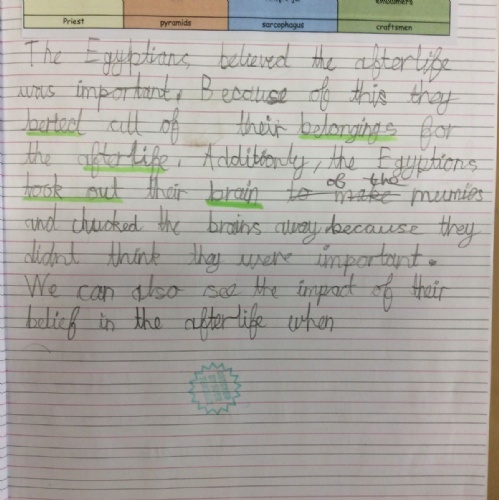 embalmers
Priest pyramids sarcophagus craftsmen
The Egyptians believed the afterlife
was important. Because of this they
beried all of their belongings for
the afterlife. Additionly, the Egyptions
took out their brain to make of the mumies
and chucked the brains away because they
didnt think they were important.
We can also see the impact of their
belief in the afterlife when